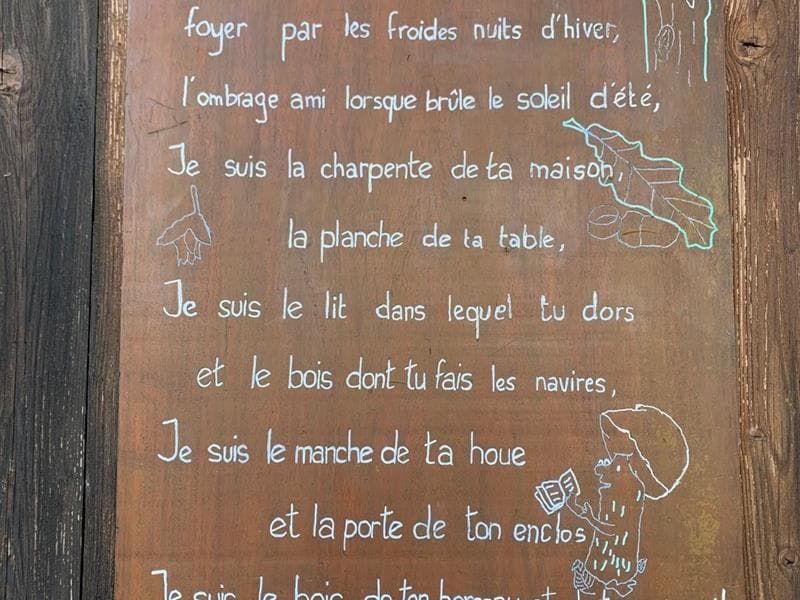 foyer par les froides nuits d'hiver,
l'ombrage ami lorsque brûle le soleil d'été,
Je suis la charpente de ta maison,
la planche de ta table,
Je suis le lit dans lequel tu dors
et le bois dont tu fais les navires,
Je suis le manche de ta houe
et la porte de ton enclos
Je suis le bois de ton